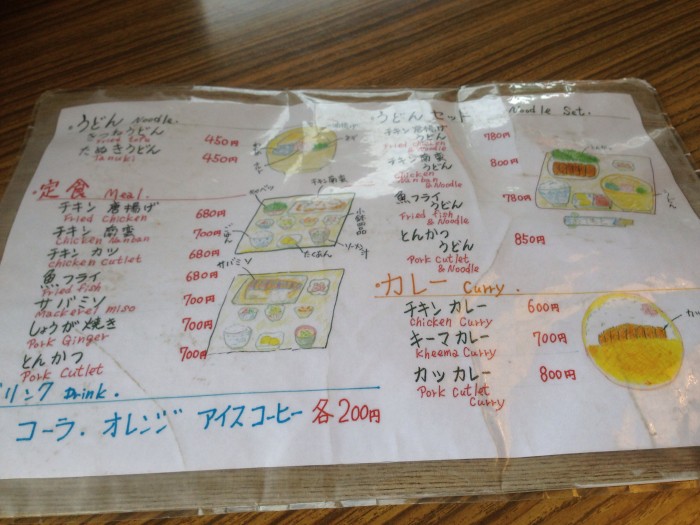 ・うどん Noodle.
きつねうどん 450円
Fried Tofu
たぬきうどん 450円
Tanuki
・定食 Meal.
チキン 唐揚げ 680円
Fried chicken
チキン 南蛮 700円
Chicken Nanban
チキン カツ 680円
chicken cutlet
魚フライ 680円
Fried fish
サバミソ 700円
Mackerel miso
しょうが焼き 700円
Pork Ginger
とんかつ 700円
Pork cutlet
チキン南蛮
小鉢2品
ごはん
たくあん
サバミソ
リンク Drink.
コーラ. オレンジ アイスコーヒー 各200円
・うどん セット Noodle Set.
チキン唐揚げ 780円
うどん
& Noodle
チキン南蛮 800円
うどん
Chicken
Nanban
& Noodle
魚フライ 780円
うどん
Fried fish
& Noodle
とんかつ 850円
うどん
Pork cutlet
& Noodle
うどん
・カレー Curry.
チキン カレー 600円
chicken Curry
キーマ カレー 700円
kheema Curry
カツ カレー 800円
Pork Cutlet
Curry